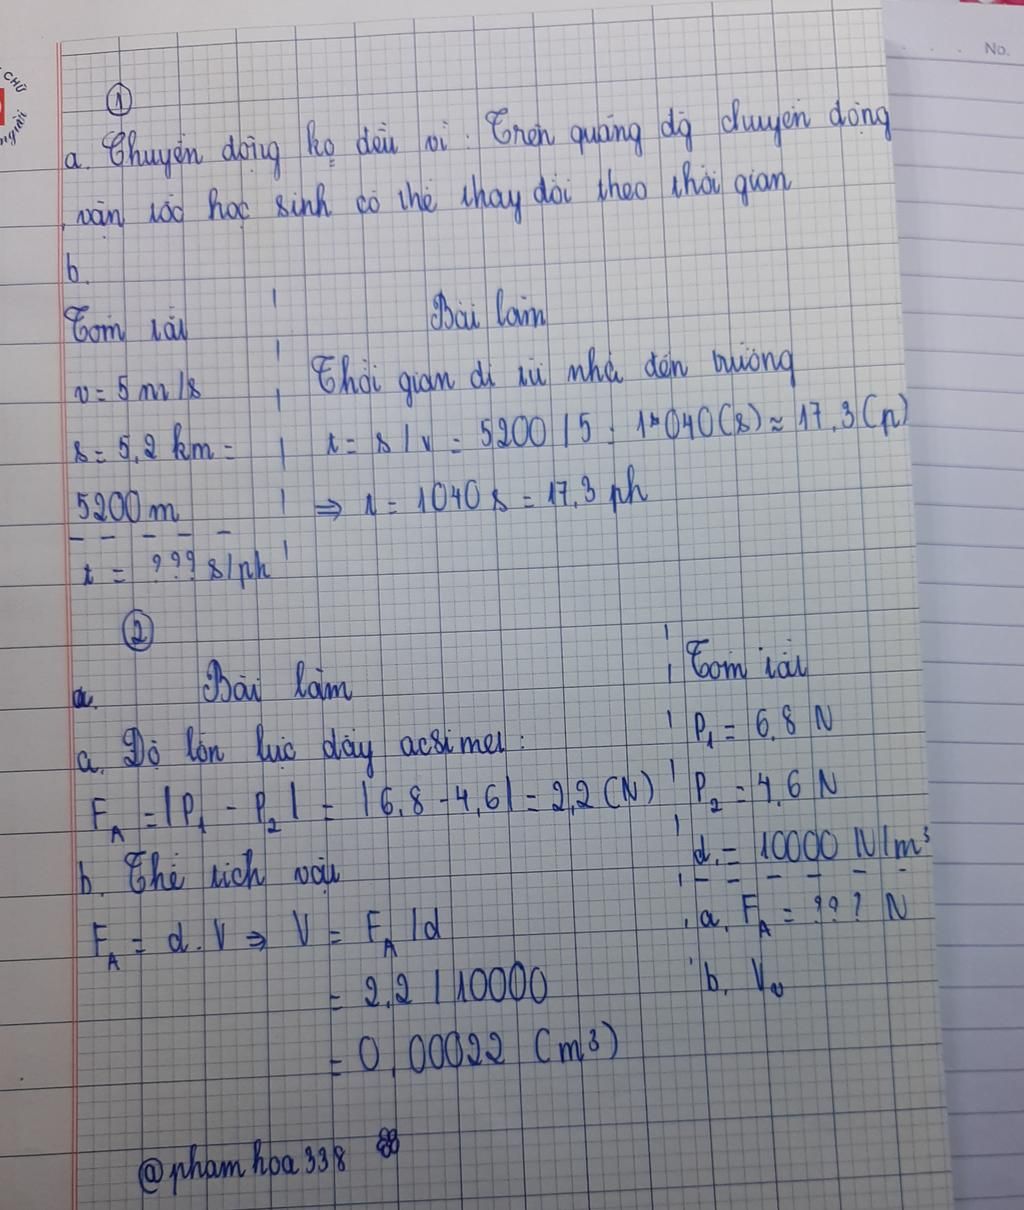 CHỮ
người
No.
①
a. Chuyển động ko đều vì. Trên quãng đg chuyển động
vận tốc học sinh có thể thay đổi theo thời gian
b.
Tóm tắt
Bài làm
v = 5 m/s
Thời gian đi từ nhà đến trường
s = 5,2 km =
t = s/v = 5200/5 = 1040(s) ≈ 17,3(p)
5200m
⇒ t = 1040 s = 17,3 ph
t = ??? s/ph
②
Bài làm
Tóm tắt
a. Độ lớn lực đẩy acsimet:
P₁ = 6,8 N
F_A = |P₁ - P₂| = |6,8 - 4,6| = 2,2 (N)
P₂ = 4,6 N
b. Thể tích vật
d = 10000 N/m³
F_A = d.V ⇒ V = F_A/d
a. F_A = ??? N
= 2,2 / 10000
b. Vᵥ
= 0,00022 (m³)
@phamhoa338